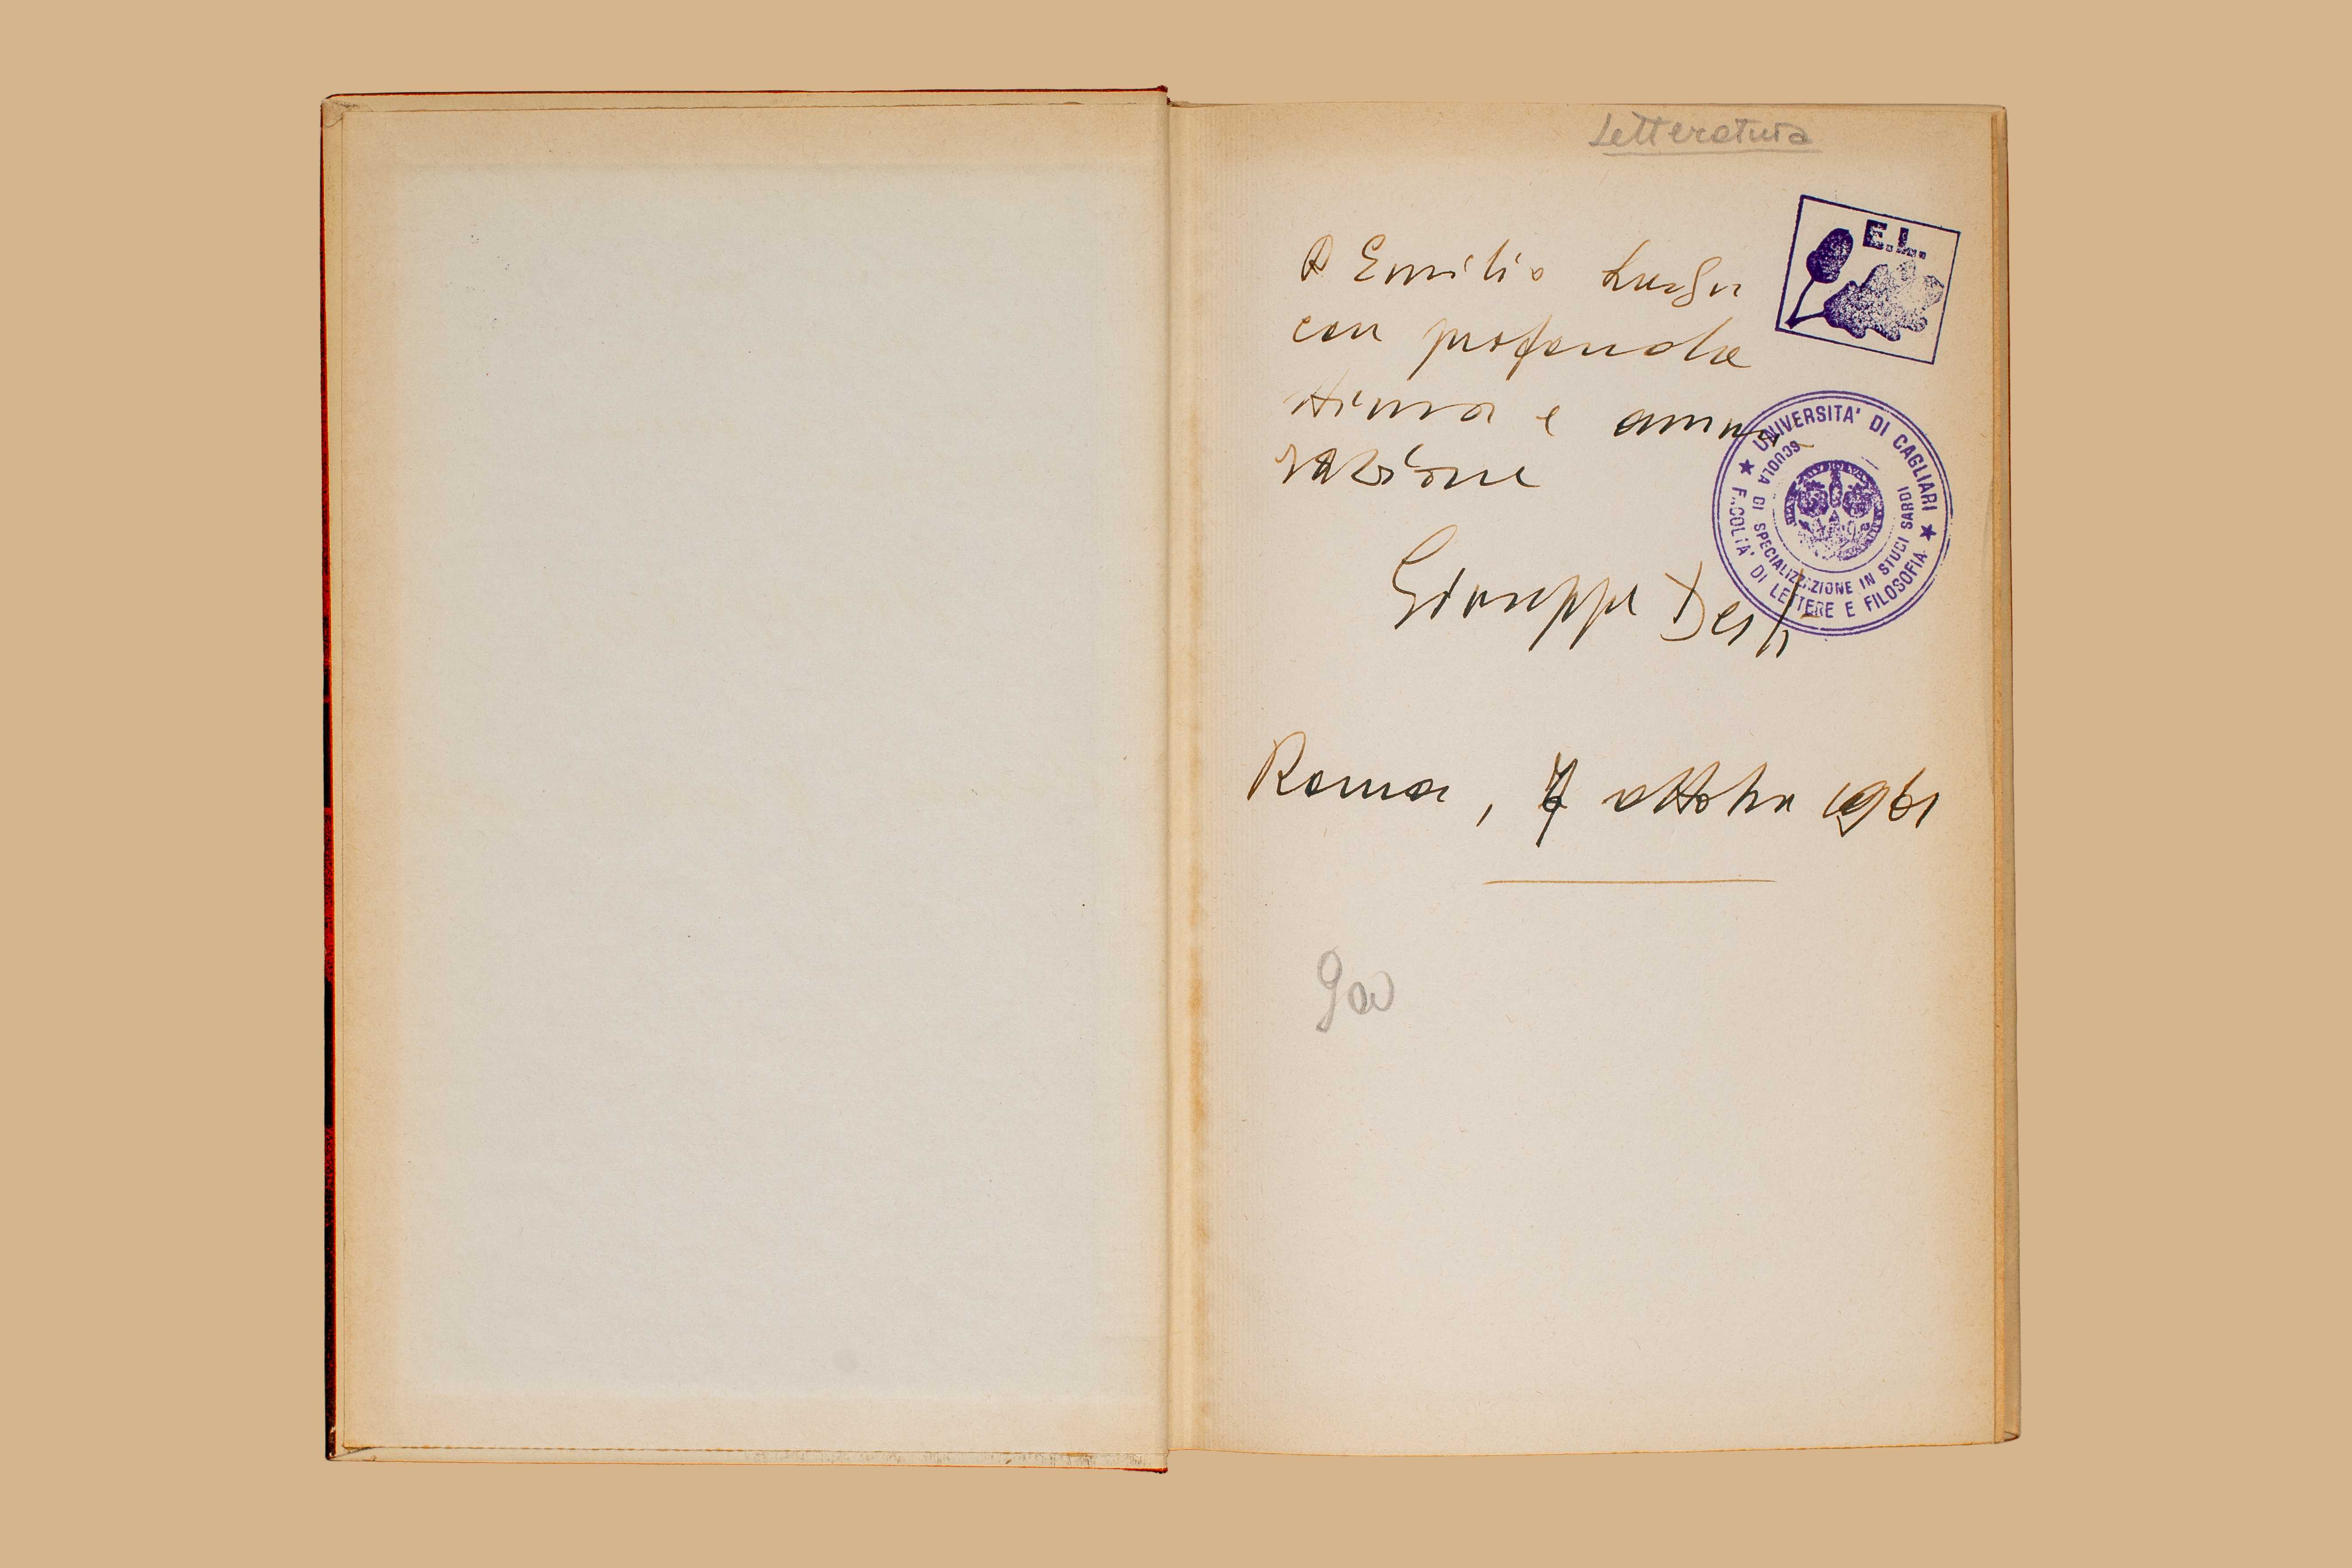 Letteratura
E.L.
A Emilio Lussu
con profonda
stima e ammi
razione
UNIVERSITA' DI CAGLIARI
★ F.COLTA' DI LETTERE E FILOSOFIA ★
SCUOLA DI SPECIALIZZAZIONE IN STUDI SARDI
Giuseppe Dessí
Roma, 7 ottobre 1961
900